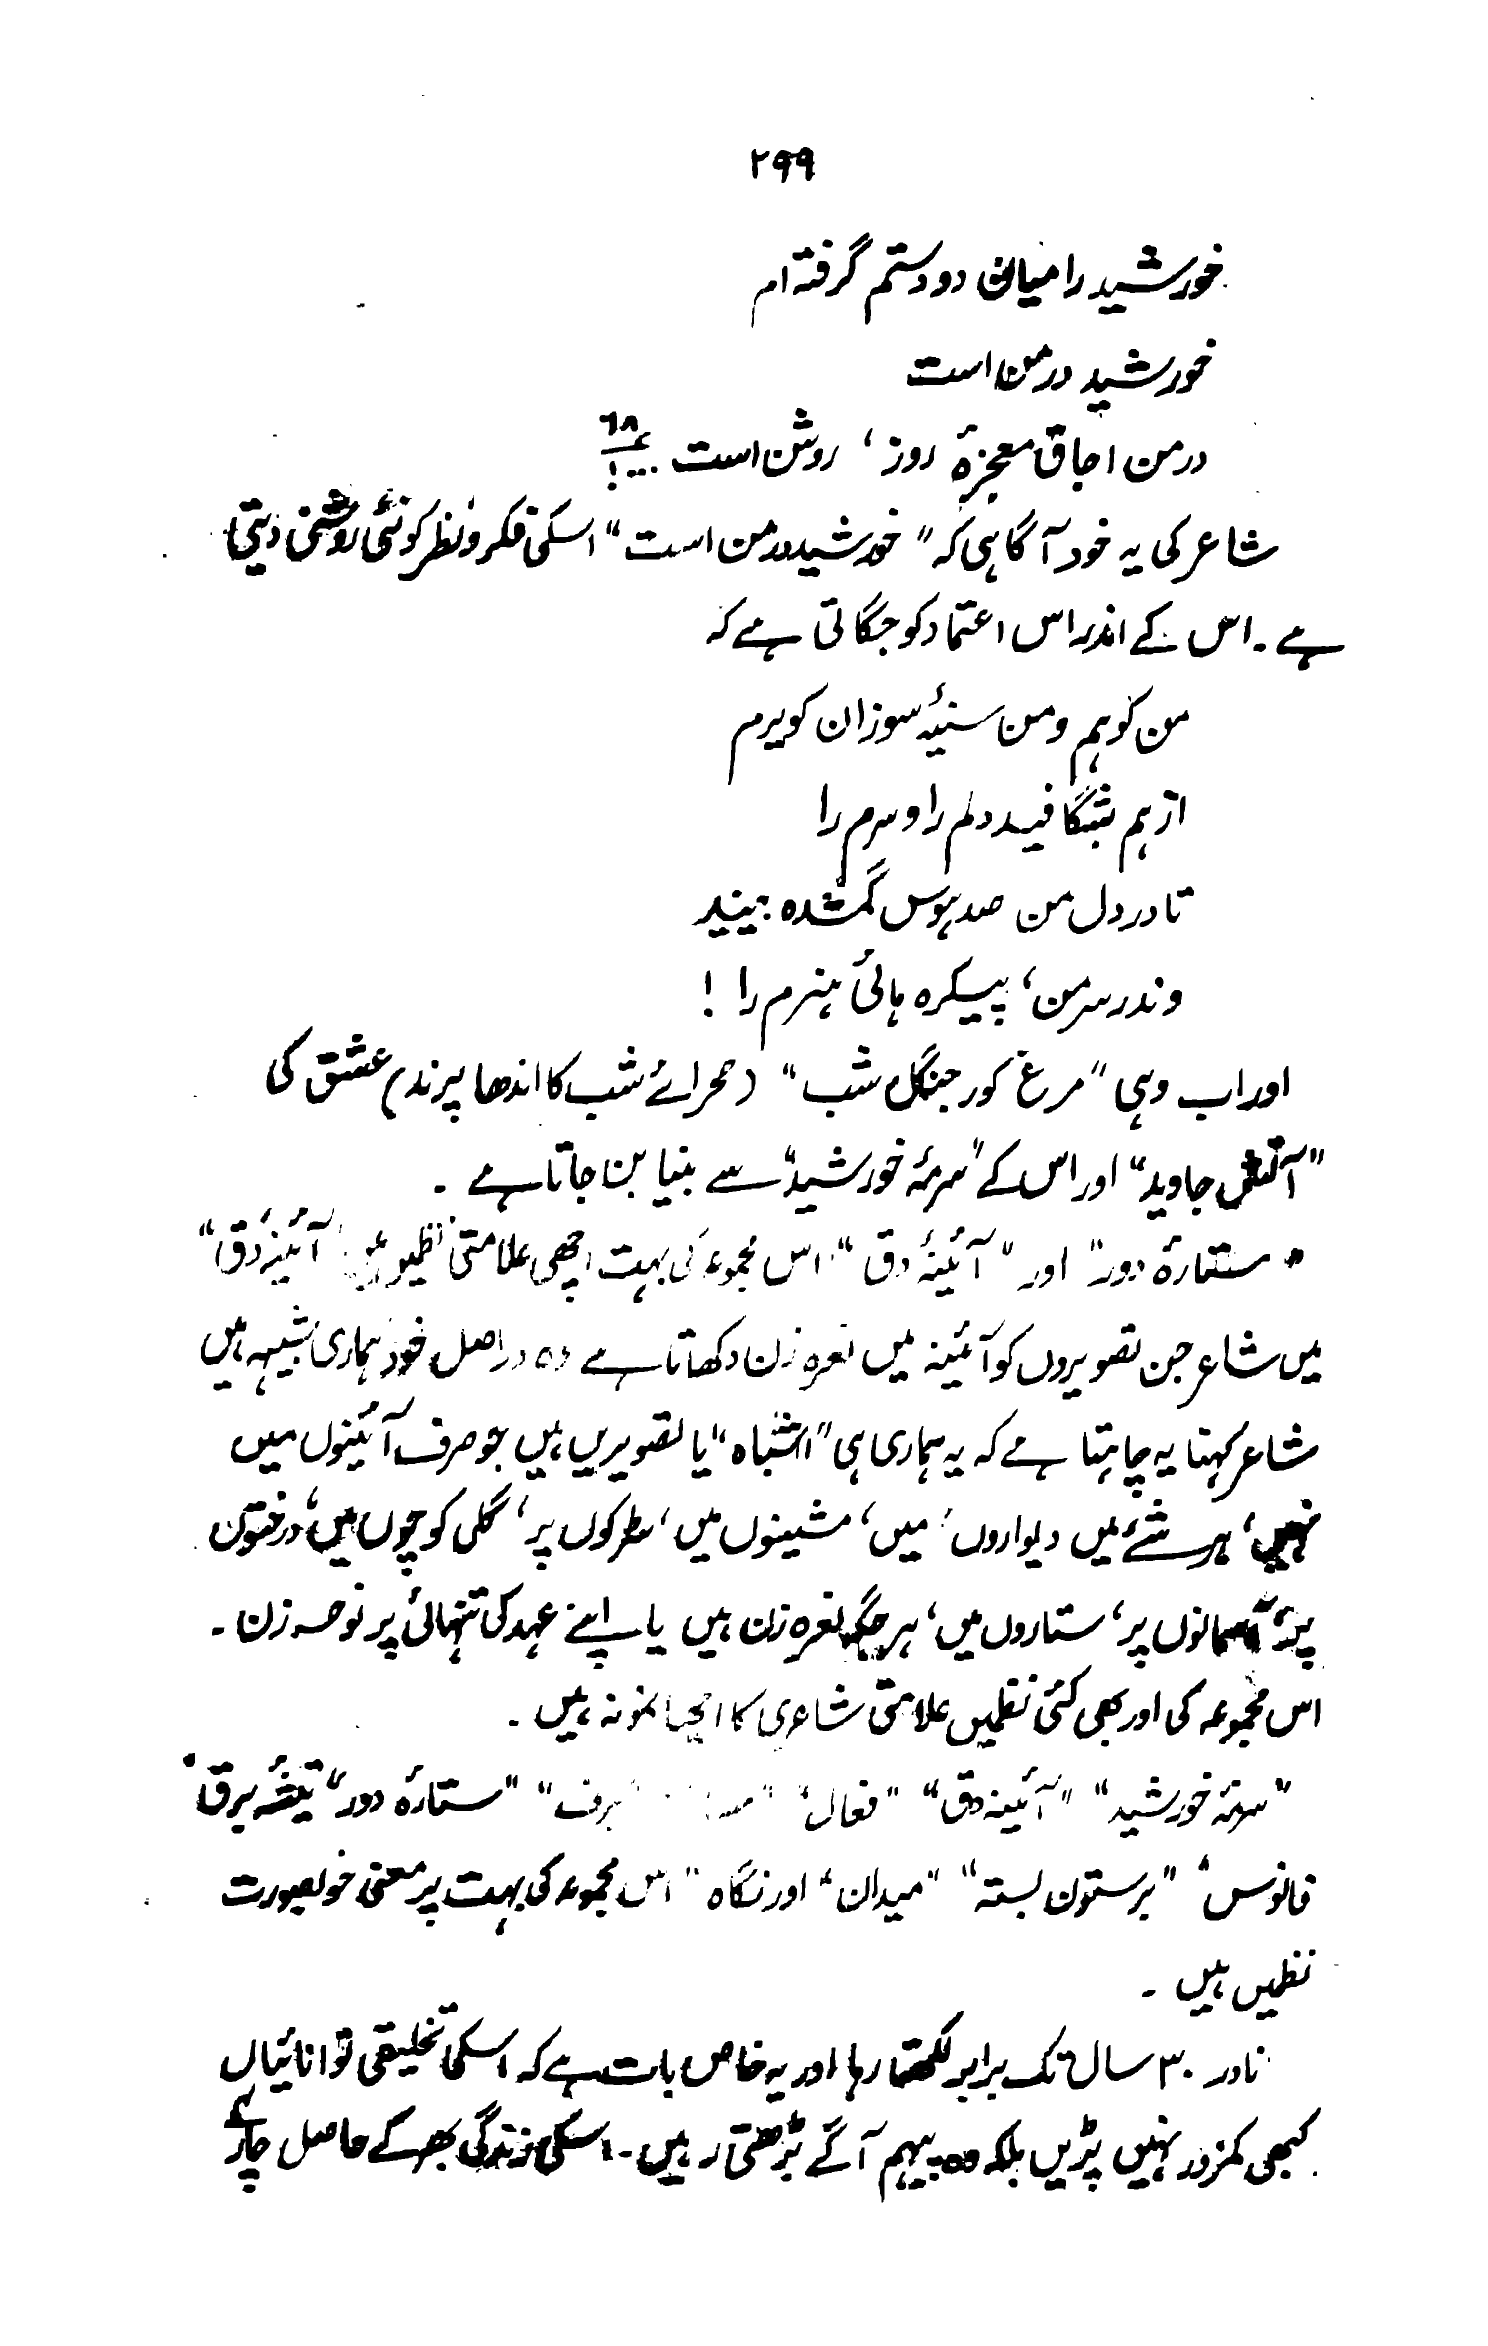 ۲۹۹
خورشید را میان دو دستم گرفتہ ام
خورشید در من است
در من اجاق معجزۂ روز، روشن است ...! ۶۸؎
شاعر کی یہ خود آگاہی کہ "خورشید در من است" اسکی فکر و نظر کو نئی روشنی دیتی
ہے۔ اس کے اندر اس اعتماد کو جگاتی ہے کہ
من کوہم و من سنیۂ سوزان کویرم
از ہم بشگافید دلم را و سرم را
تا در دل من صد ہوس گمشدہ بینید
وندر سر من، پیکرہ ہائی ہنرم را !
اور اب وہی "مرغ کور جنگل شب" (صحرائے شب کا اندھا پرند) عشق کی
"آتش جاوید" اور اس کے "سرمۂ خورشید" سے بنیا بن جاتا ہے ۔
"ستارۂ دور" اور "آئینۂ دق" اس مجموعہ کی بہت اچھی علامتی نظمیں ہیں "آئینۂ دق"
میں شاعر جن تصویروں کو آئینہ میں نعرہ زن دکھاتا ہے وہ دراصل خود ہماری شبیہہ ہیں
شاعر کہنا یہ چاہتا ہے کہ یہ ہماری ہی "اشباہ" یا تصویریں ہیں جو صرف آئینوں میں
نہیں، ہر شئے میں دیواروں، میں، مشینوں میں، سڑکوں پر، گلی کوچوں میں، درختوں
پر، آسمانوں پر، ستاروں میں، ہر جگہ نعرہ زن ہیں یا اپنے عہد کی تنہائی پر نوحہ زن ۔
اس مجموعہ کی اور بھی کئی نظمیں علامتی شاعری کا اچھا نمونہ ہیں ۔
"سرمۂ خورشید" "آئینہ دق" "فعال" برف" "ستارۂ دور" تیشۂ برق"
فانوس" "برستون بستہ" "میدان" اور نگاہ" اس مجموعہ کی بہت پر معنی خوبصورت
نظمیں ہیں ۔
نادر ۳۰ سال تک برابر لکھتا رہا اور یہ خاص بات ہے کہ اسکی تخلیقی توانائیاں
کبھی کمزور نہیں پڑیں بلکہ وہ پیہم آگے بڑھتی رہیں۔ اسکی زندگی بھر کے حاصل چار